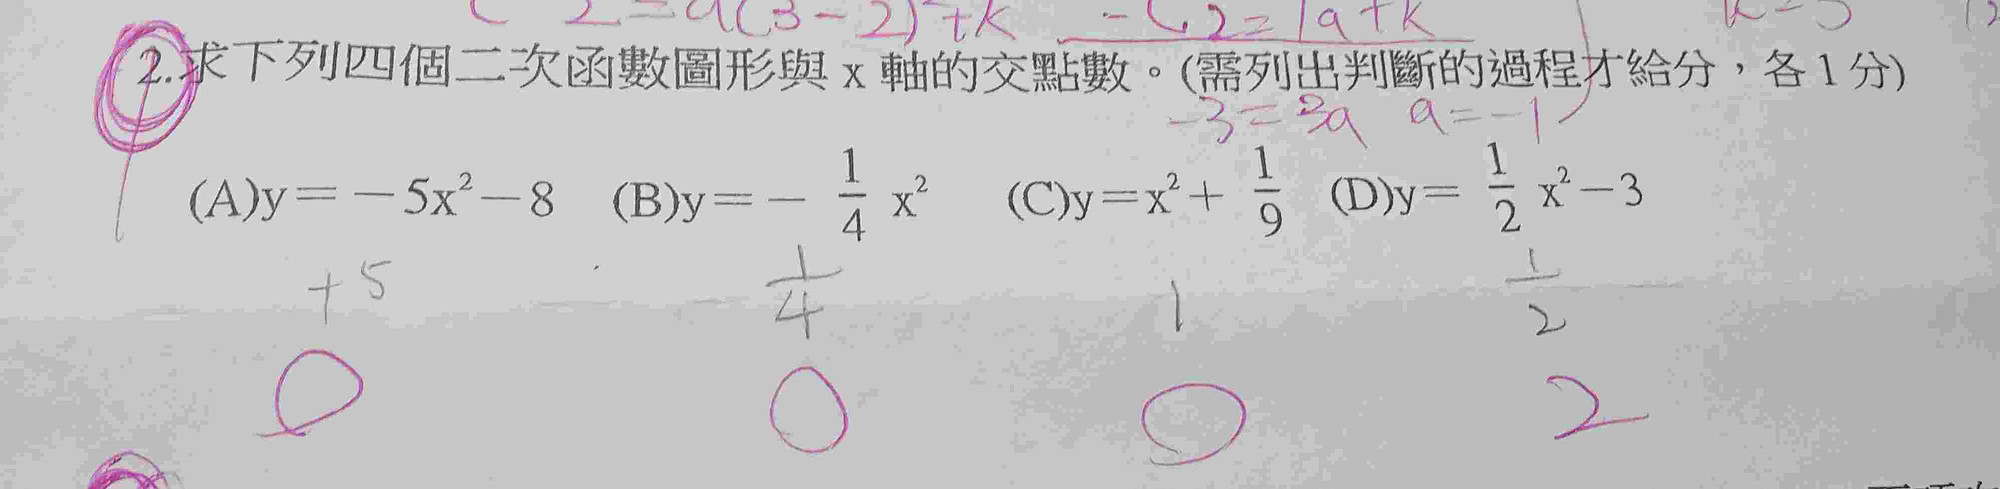 2=a(3-2)²+k -(2=1a+k k=5
2.求下列四個二次函數圖形與 x 軸的交點數。(需列出判斷的過程才給分，各1分)
-3=3a a=-1
(A)y=-5x²-8 (B)y=-1/4 x² (C)y=x²+1/9 (D)y=1/2 x²-3
+5 1/4 1 1/2
0 0 0 2